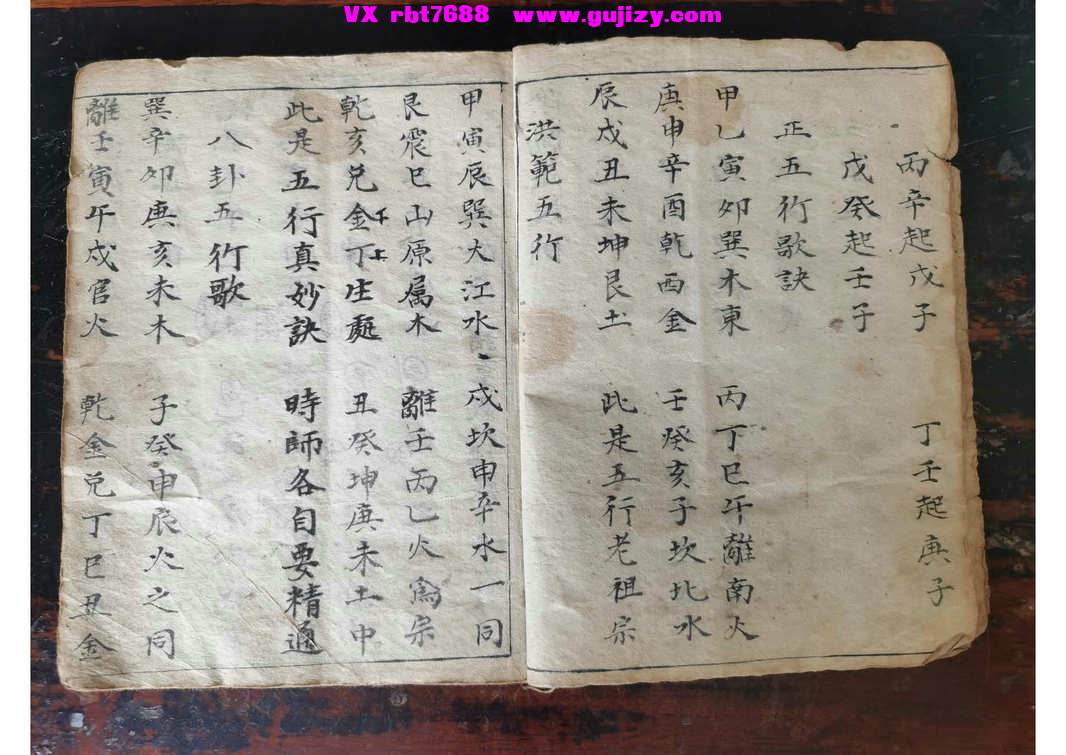 VX rbt7688 www.gujizy.com
丙辛起戊子 丁壬起庚子
戊癸起壬子
正五行歌訣
甲乙寅卯巽木東 丙丁巳午離南火
庚申辛酉乾西金 壬癸亥子坎北水
辰戌丑未坤艮土 此是五行老祖宗
洪範五行
甲寅辰巽大江水 戌坎申辛水一同
艮震巳山原属木 離壬丙乙火為宗
乾亥兌金丁生處 丑癸坤庚未土中
此是五行真妙訣 時師各自要精通
八卦五行歌
巽辛卯庚亥未木 子癸申辰火之同
離壬寅午戌官火 乾金兌丁巳丑金